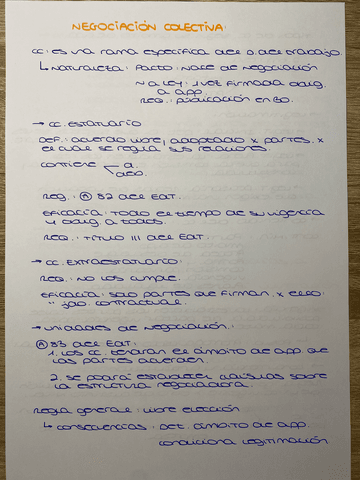 NEGOCIACIÓN COLECTIVA:
CC: es una rama específica del D. del trabajo.
↳ Naturaleza: Pacto: Nace de negociación
~ a Ley: 1 vez firmada oblig. a app.
Req.: publicación en BO.
→ CC. ESTATUTARIO
DEF.: acuerdo libre, adoptado x partes. x
el cual se regula sus relaciones.
contiene
Reg.: A 82 del EAT.
Eficacia: Todo el tiempo de su vigencia
y oblig a todos.
Req.: Título III del EAT.
→ CC. EXTRAESTATUTARIO:
Req.: NO los cumple.
Eficacia: solo partes que firman. x ello:
contractual.
→ UNIDADES DE NEGOCIACIÓN:
A 83 del EAT:
1. Los CC. tendrán el ámbito de app. que
las partes acuerden.
2. se podrá establecer cláusulas sobre
la estructura negociadora.
Regla general: libre elección
↳ consecuencias: Det. ámbito de app.
condiciona legitimación